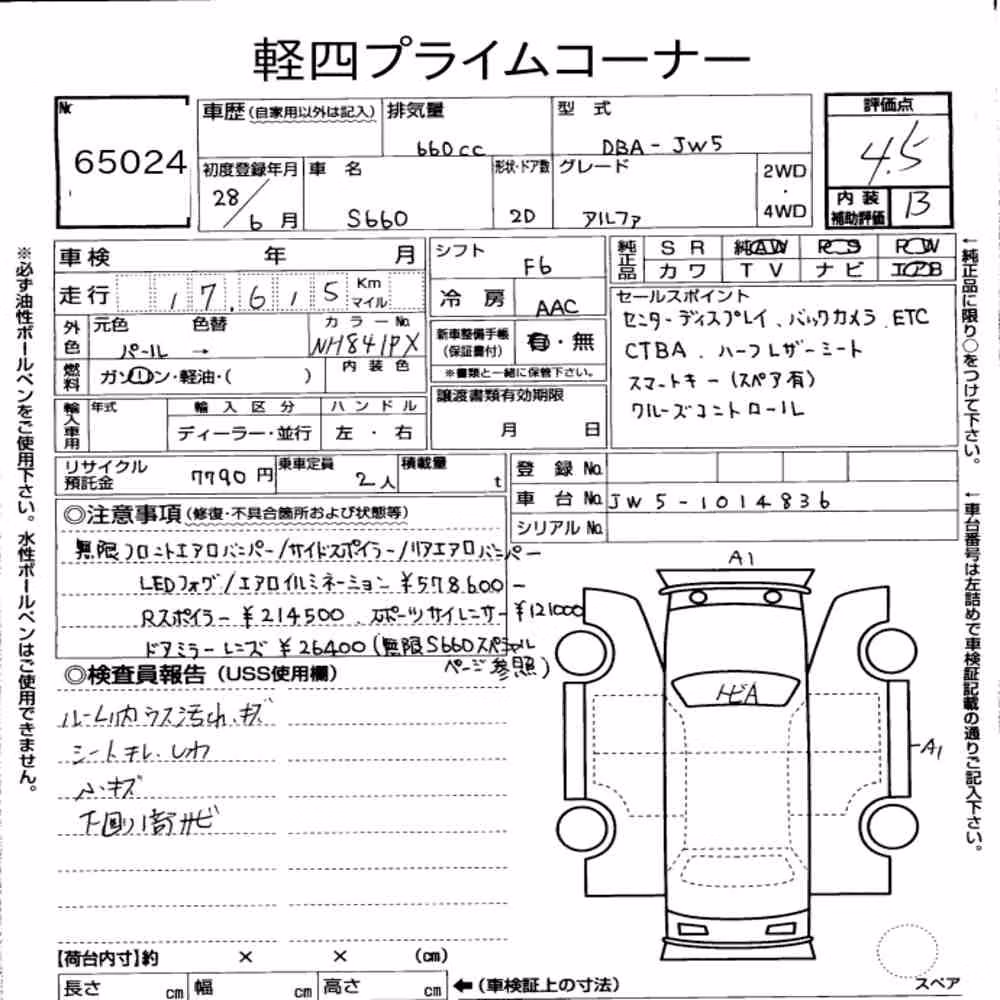 軽四プライムコーナー
№ 65024
車歴 (自家用以外は記入) 排気量 660cc 型式 DBA-JW5
初度登録年月 28/6月 車名 S660 形状・ドア数 2D グレード アルファ 2WD・4WD
評価点 4.5
内装補助評価 B
車検 年 月
走行 17,615 Km マイル
外色 元色 パール → 色替 カラーNo. NH841PX
燃料 ガソリン・軽油・( ) 内装色
輸入車用 年式 輸入区分 ディーラー・並行 ハンドル 左・右
シフト F6
冷房 AAC
新車整備手帳 (保証書付) 有・無
※書類と一緒に保管下さい。
譲渡書類有効期限 月 日
純正品 SR 純AW PS PW
カワ TV ナビ エアB
セールスポイント
センターディスプレイ、バックカメラ ETC
CTBA、ハーフレザーシート
スマートキー(スペア有)
クルーズコントロール
リサイクル預託金 7790円 乗車定員 2人 積載量 t
登録No.
車台No. JW5-1014836
シリアルNo.
◎注意事項(修復・不具合箇所および状態等)
無限フロントエアロバンパー/サイドスポイラー/リアエアロバンパー
LEDフォグ/エアロイルミネーション ¥578,600-
Rスポイラー ¥214500、スポーツサイレンサー ¥121000
ドアミラーレンズ ¥26400(無限S660スペシャル
ページ参照)
◎検査員報告(USS使用欄)
ルーム内ウス汚れ、キズ
シートキレ、しわ
小キズ
下回り1部サビ
A1
トビA
A1
スペア
【荷台内寸】約 × × (cm)
長さ cm 幅 cm 高さ cm ←(車検証上の寸法)
※必ず油性ボールペンをご使用下さい。水性ボールペンはご使用できません。
←純正品に限り○をつけて下さい。
←車台番号は左詰めで車検証記載の通りご記入下さい。